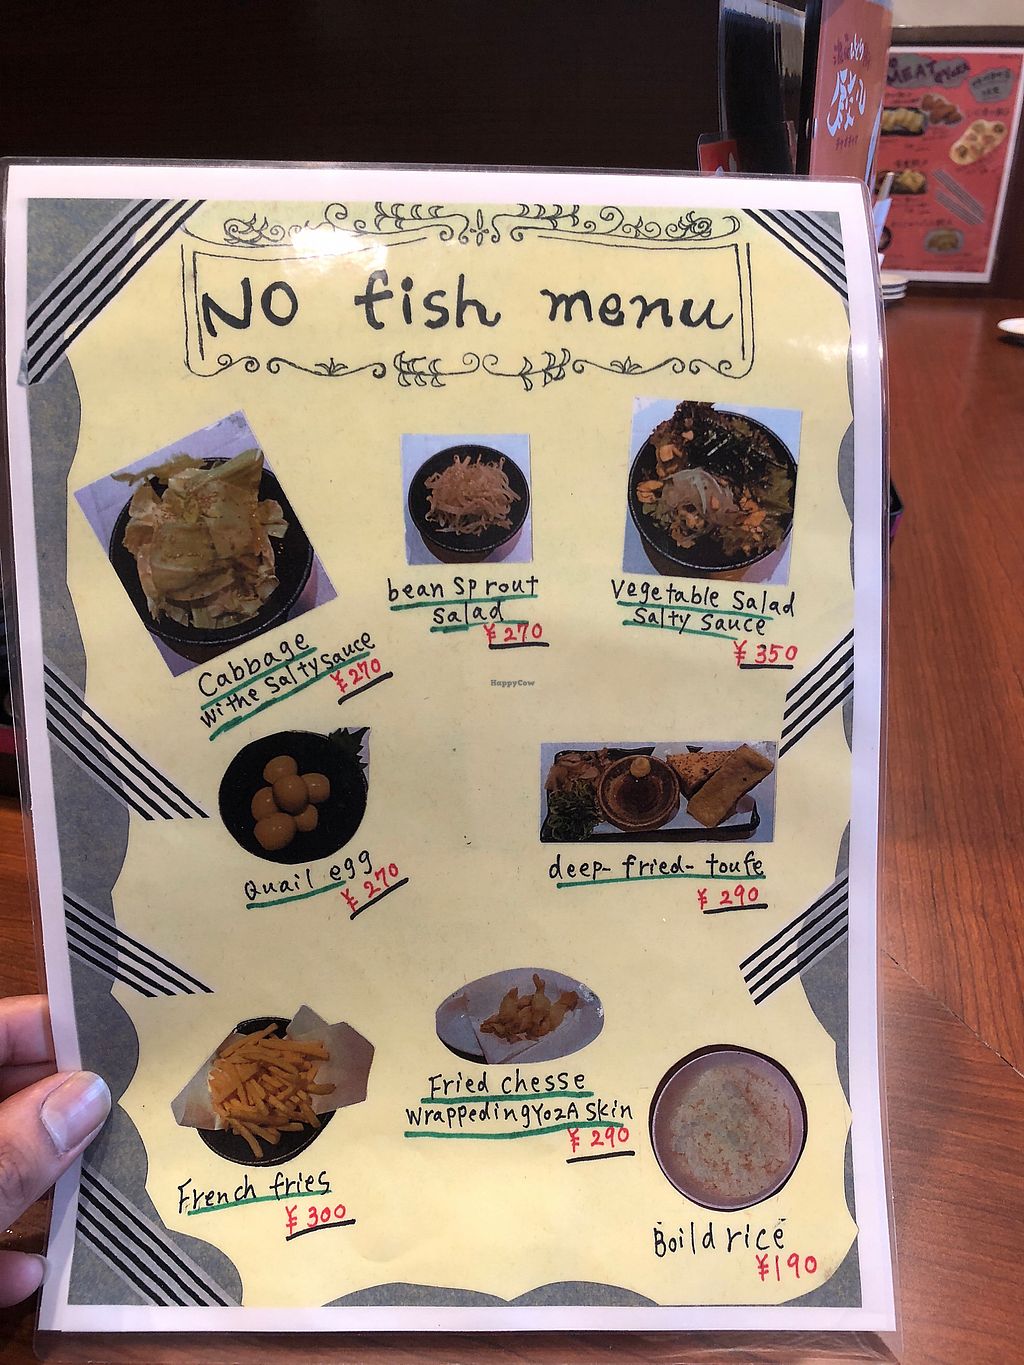 NO fish menu
Cabbage
withe salty sauce
¥270
bean sprout
salad
¥270
Vegetable salad
salty sauce
¥350
HappyCow
Quail egg
¥270
deep-fried-toufe
¥290
French fries
¥300
Fried chesse
wrappedingYozA skin
¥290
Boild rice
¥190
MEAT